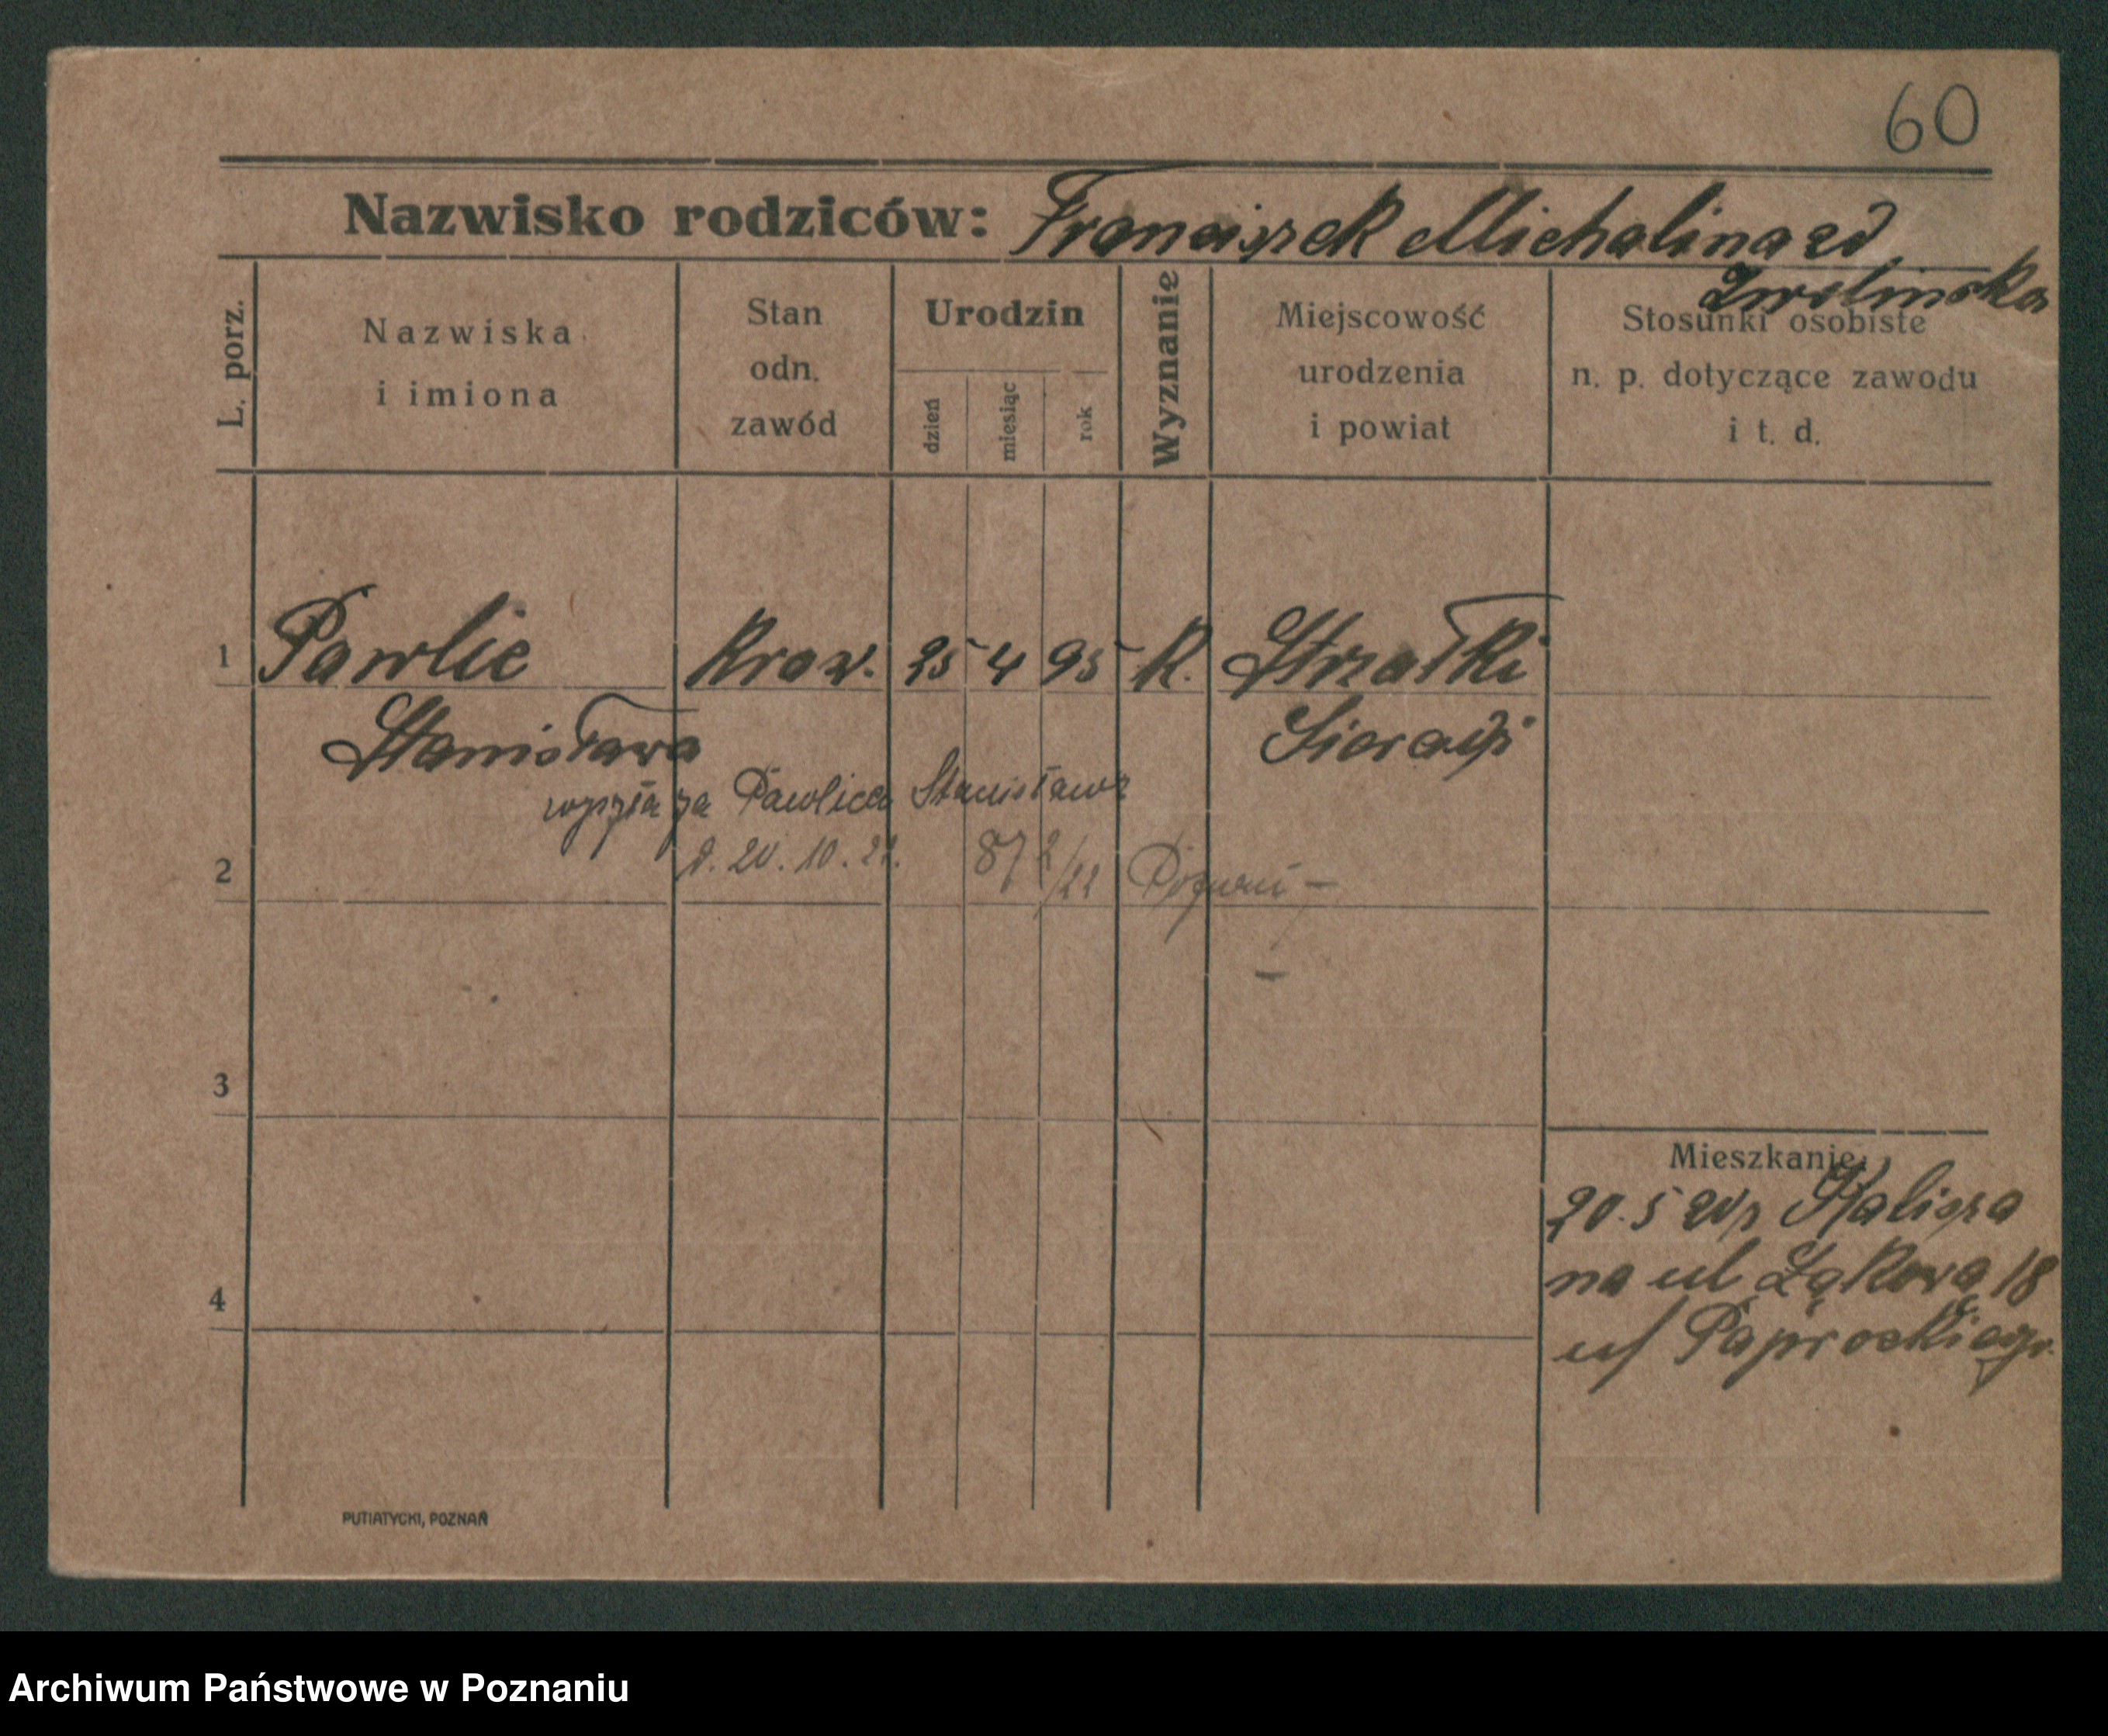 60
Nazwisko rodziców: Franciszek Michalina zd
Zwolinska
L. porz.
Nazwiska
i imiona
Stan
odn.
zawód
Urodzin
dzień
miesiąc
rok
Wyznanie
Miejscowość
urodzenia
i powiat
Stosunki osobiste
n. p. dotyczące zawodu
i t. d.
1 Pawlic Kraw. 25 4 95 R. Strzałki
Stanisława Sieradz
wyszła za Pawlica Stanisława
d. 20. 10. 22. 872/22 Poznań —
2
3
4
Mieszkanie:
20. 5 20 z Kalisza
na ul Łąkowa 18
u/ Paprockiego.
PUTIATYCKI, POZNAŃ
Archiwum Państwowe w Poznaniu